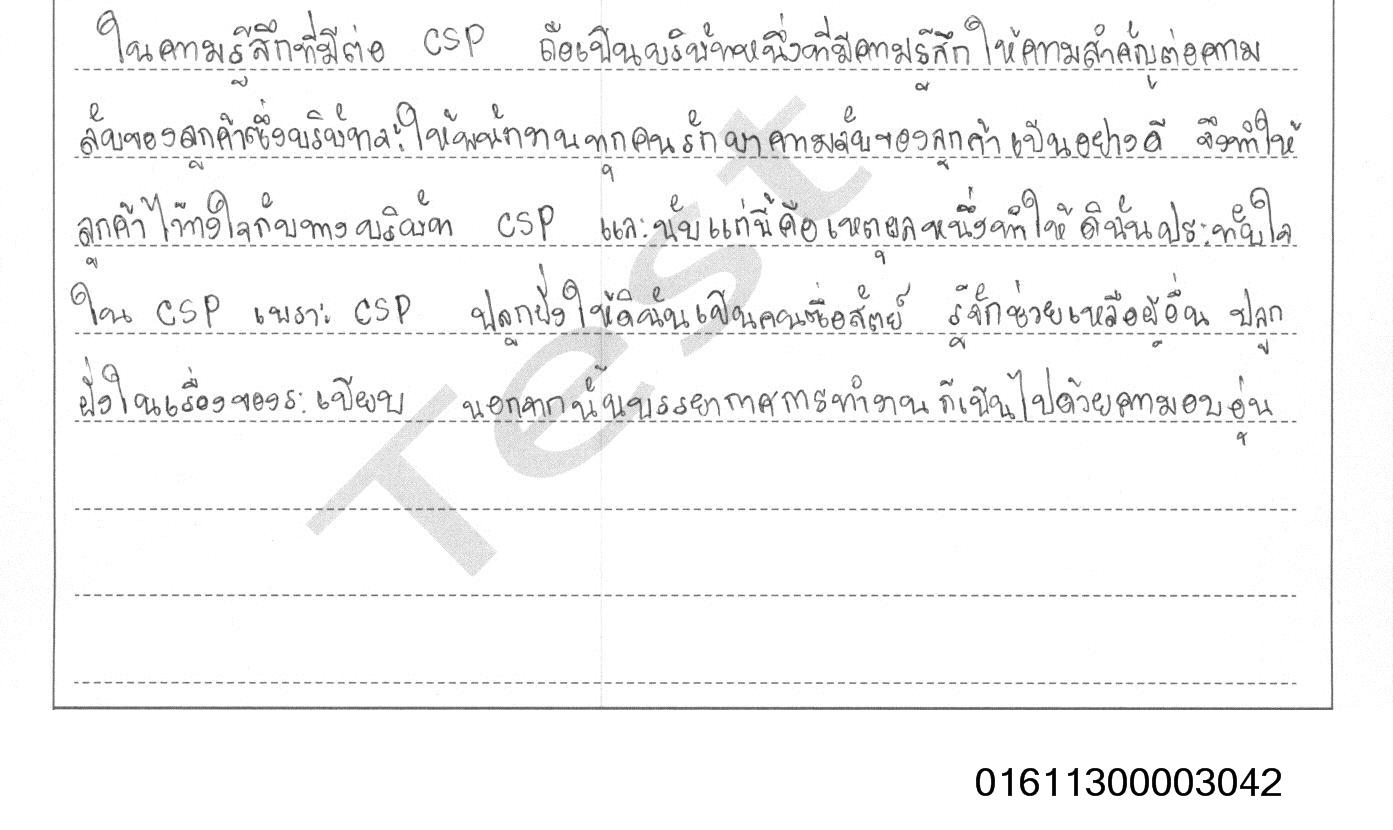 ในความรู้สึกที่มีต่อ CSP ถือเป็นบริษัทหนึ่งที่มีความรู้สึกให้ความสำคัญต่อความ
ลับของลูกค้าซึ่งบริษัทจะให้พนักงานทุกคนรักษาความลับของลูกค้าเป็นอย่างดี จึงทำให้
ลูกค้าไว้วางใจกับทางบริษัท CSP และนับแต่นี้คือเหตุผลหนึ่งทำให้ดิฉันประทับใจ
ใน CSP เพราะ CSP ปลูกฝั่งให้ดิฉันเป็นคนซื่อสัตย์ รู้จักช่วยเหลือผู้อื่น ปลูก
ฝั่งในเรื่องของระเบียบ นอกจากนั้นบรรยากาศการทำงานก็เป็นไปด้วยความอบอุ่น
Test
01611300003042